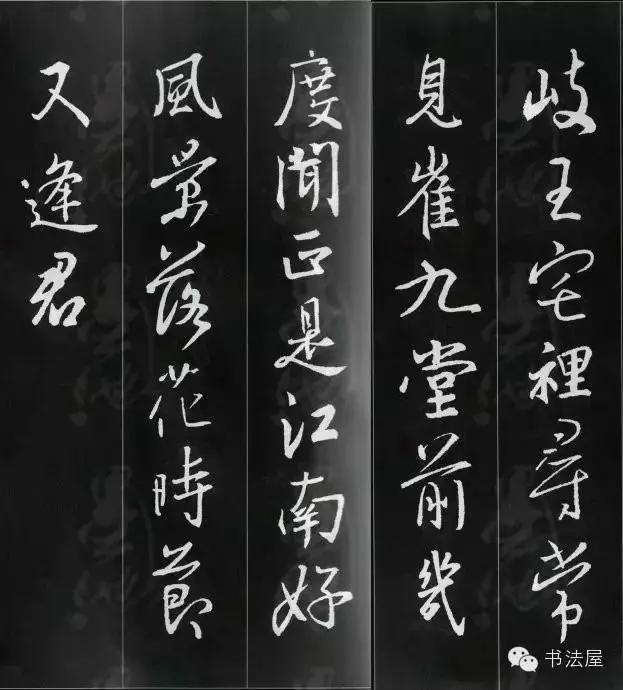 岐王宅裡尋常
見崔九堂前幾
度聞正是江南好
風景落花時節
又逢君
书法屋